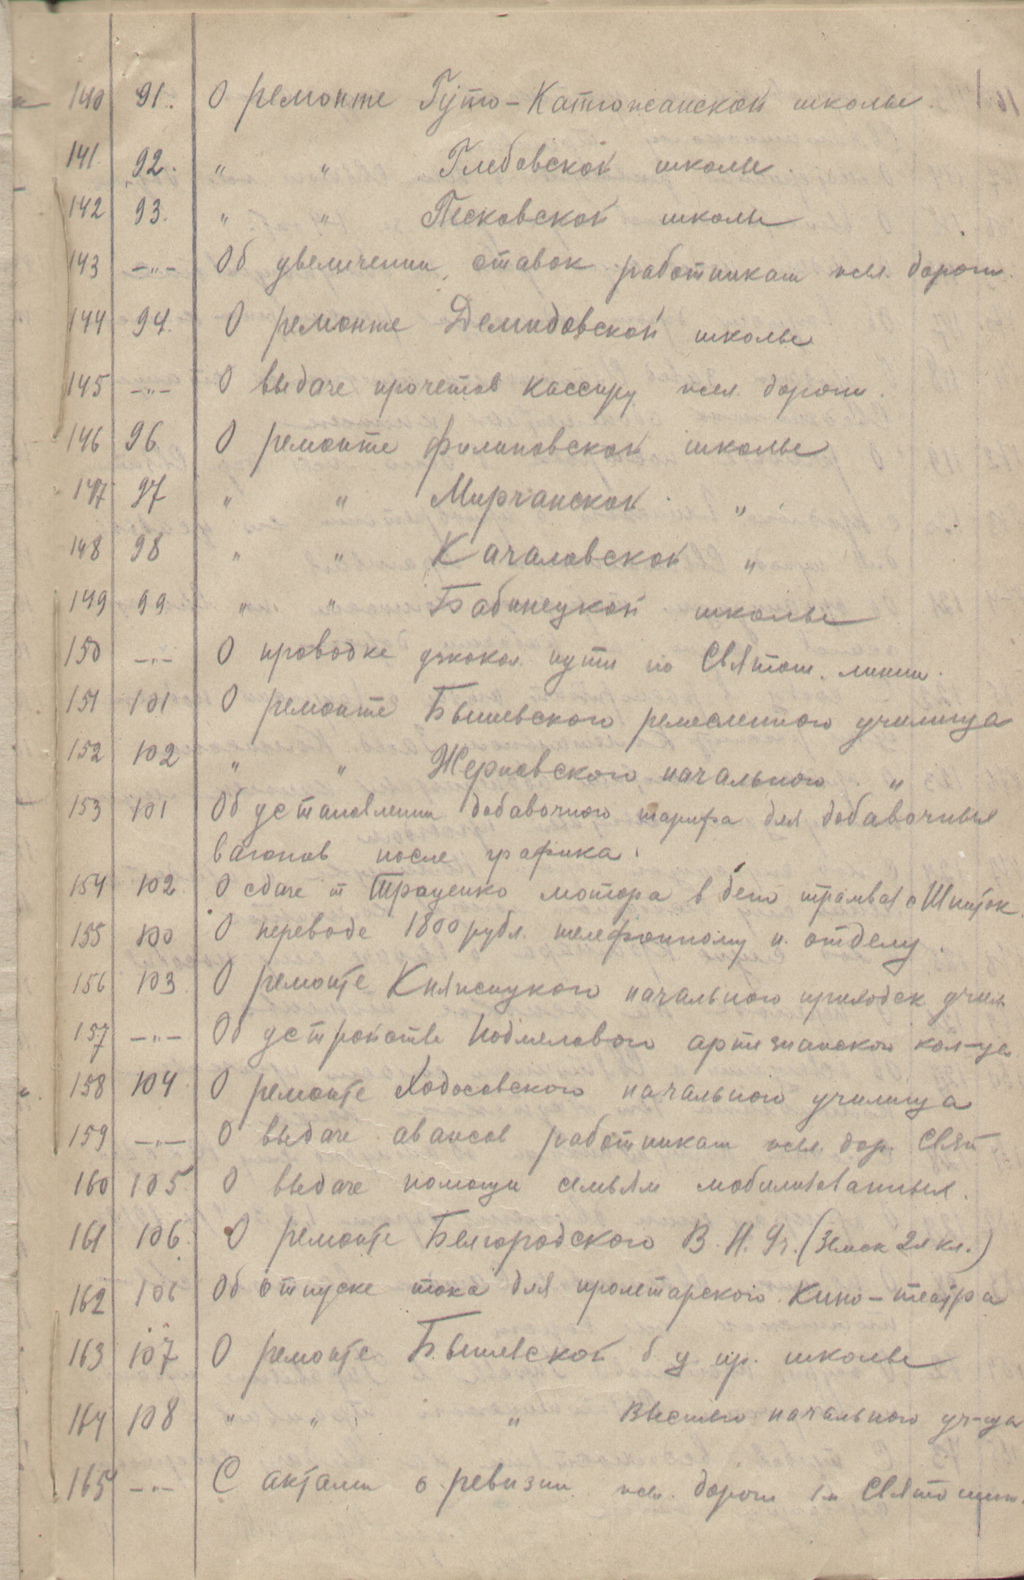 140 91. О ремонте Гуто-Катюжанской школы.
141 92. " " Глебовской школы.
142 93. " " Песковской школы
143 -"- Об увеличении ставок работникам жел. дороги.
144 94. О ремонте Демидовской школы
145 -"- О выдаче прочетов кассиру жел. дороги.
146 96 О ремонте Филиповской школы
147 97 " " Мирчанской "
148 98 " " Качаловской "
149 99 " " Бабинецкой школы
150 -"- О проводке пути по Святош. линии.
151 101 О ремонте Бышевского ремесленного училища
152 102 " " Жерновского начального "
153 101 Об установлении добавочного тарифа для добавочных
вагонов после графика.
154 102 О сдаче т Троценко мотора в трамвая
155 100 О переводе 1800 рубл. телефонному п. отделу.
156 103 О ремонте Княжицкого начального приходск учил
157 -"- Об устройстве артезианской кол-ца
158 104 О ремонте Ходосовского начального училища
159 -"- О выдаче авансов работникам жел. дор. Свят.
160 105 О выдаче помощи семьям мобилизованных.
161 106 О ремонте Белгородского В. Н. Уч. (Земск 2х кл.)
162 106 Об отпуске тока для пролетарского Кино-театра
163 107 О ремонте Бышевской б ц пр. школы
164 108 " " " Высшего начального уч-ща
165 -"- С актами о ревизии жел. дороги Святошин.